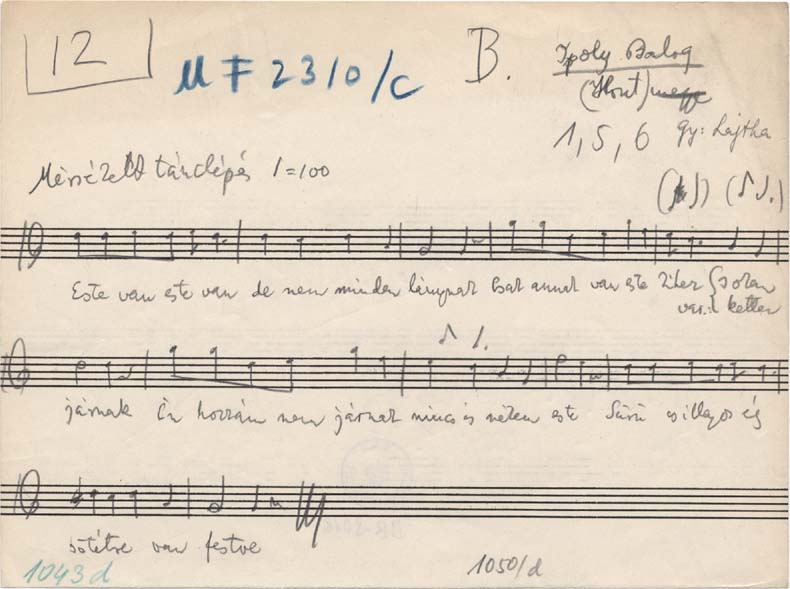 12
MF 2310/c
B.
Ipoly Balog
(Hont) megye
1, 5, 6 Gy: Lajtha
Mérsékelt tánclépés = 100
Este van este van de nem minden lánynak Csak annak van este kihez { soran
var.: ketten
járnak Én hozzám nem járnak nincs is nékem este Sűrű csillagos ég
sötétre van festve
1043 d
1050/d